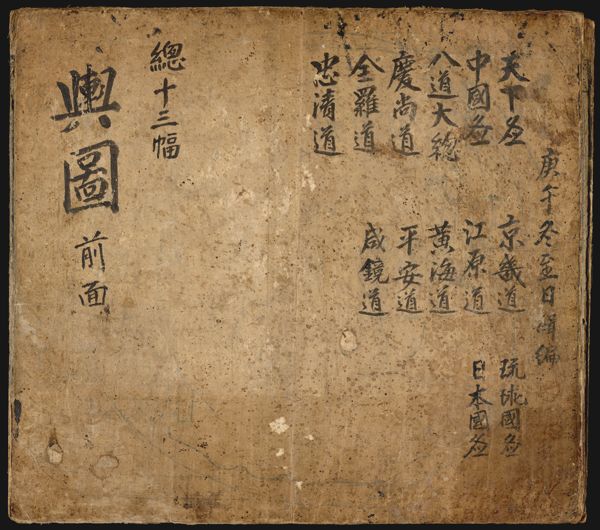 庚午冬至日編
天下圖
中國圖
八道大總
慶尚道
全羅道
忠清道
京畿道
江原道
黃海道
平安道
咸鏡道
琉球國圖
日本國圖
總十三幅
輿圖
前面